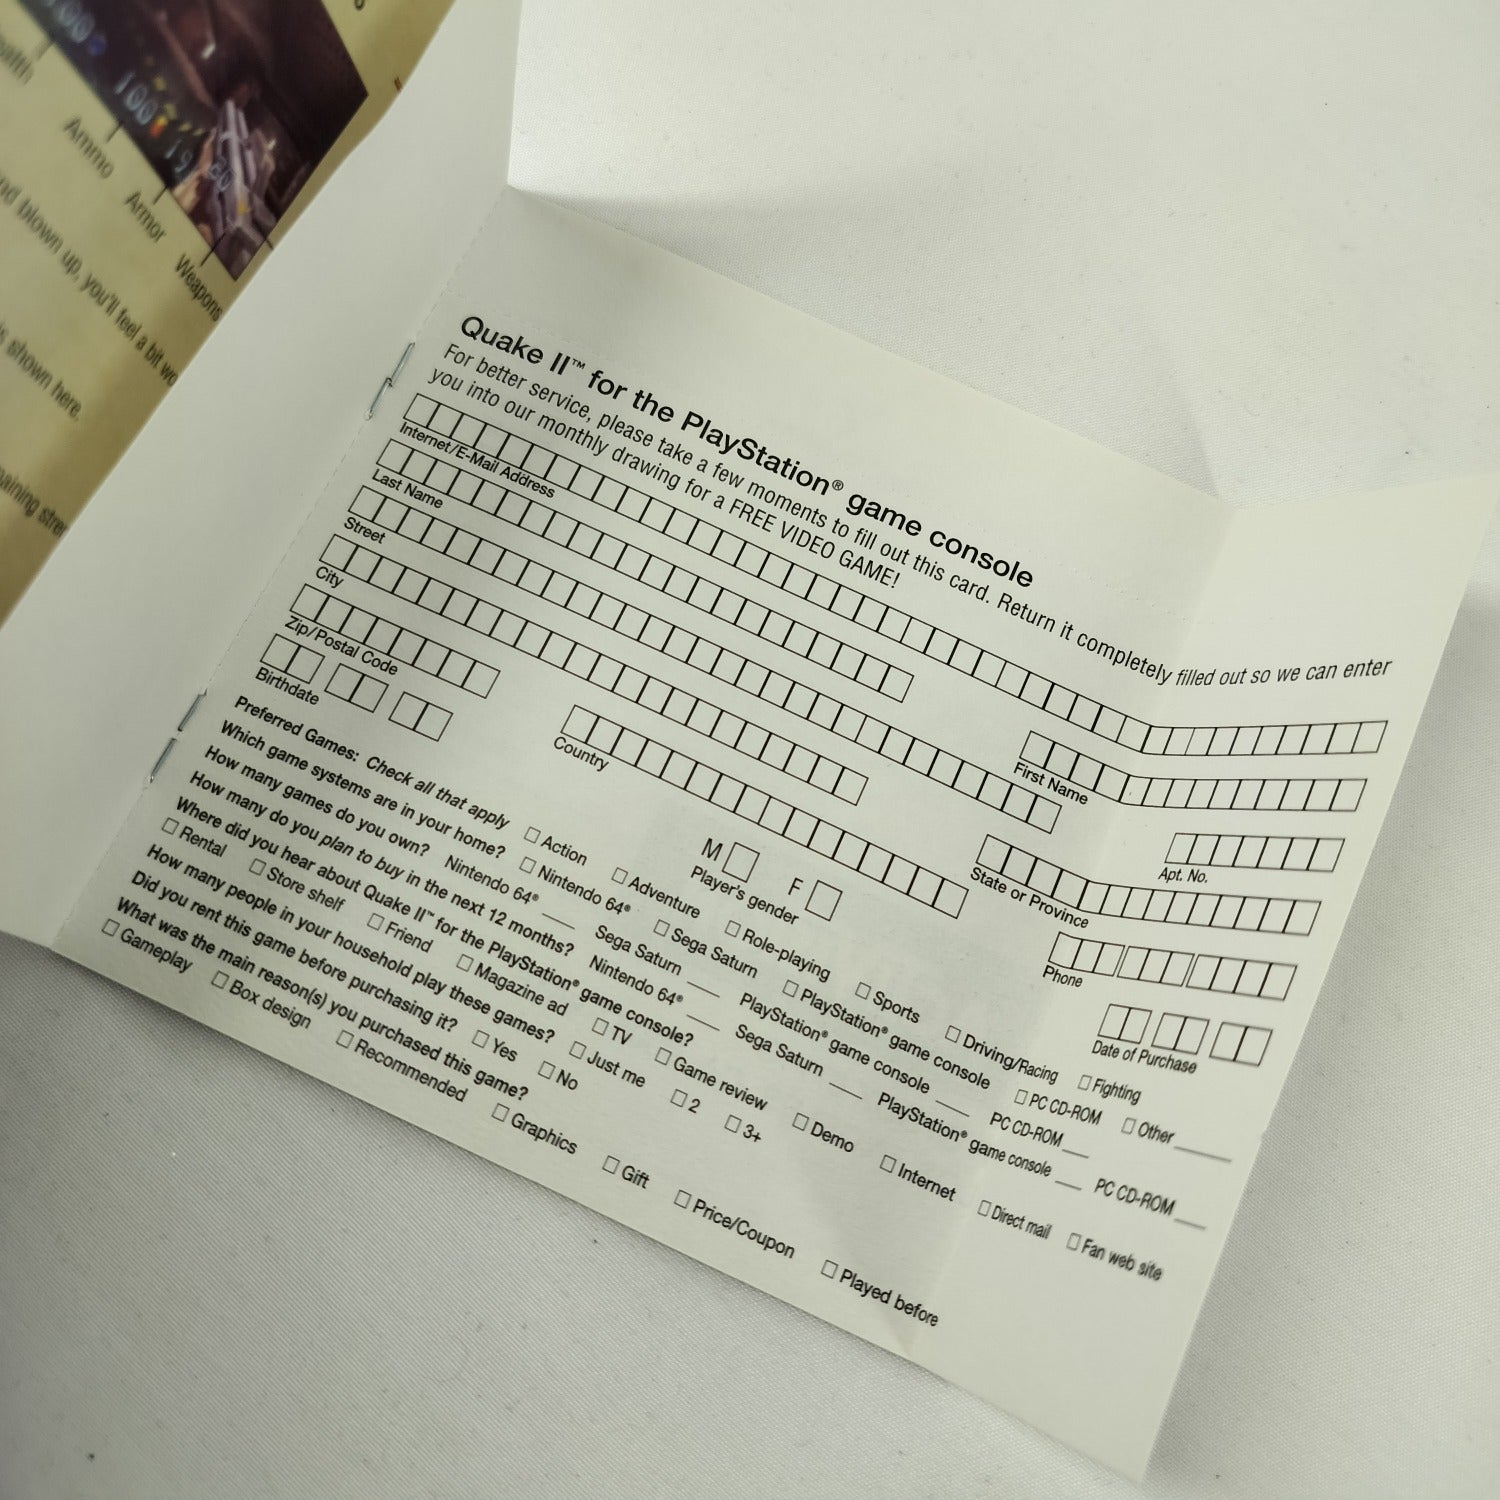 100
100 19
Ammo
Armor
Weapons
blown up, you'll feel a bit
shown here.
Quake II™ for the PlayStation® game console
For better service, please take a few moments to fill out this card. Return it completely filled out so we can enter
you into our monthly drawing for a FREE VIDEO GAME!
Internet/E-Mail Address
Last Name First Name
Street Apt. No.
City State or Province
Zip/Postal Code Country Phone
Birthdate M F Player's gender Date of Purchase
Preferred Games: Check all that apply Action Adventure Role-playing Sports Driving/Racing Fighting
Which game systems are in your home? Nintendo 64® Sega Saturn PlayStation® game console PC CD-ROM Other
How many games do you own? Nintendo 64® ___ Sega Saturn ___ PlayStation® game console ___ PC CD-ROM ___
How many do you plan to buy in the next 12 months? Nintendo 64® ___ Sega Saturn ___ PlayStation® game console ___ PC CD-ROM ___
Where did you hear about Quake II™ for the PlayStation® game console?
Rental Store shelf Friend Magazine ad TV Game review Demo Internet Direct mail Fan web site
How many people in your household play these games? Just me 2 3+
Did you rent this game before purchasing it? Yes No
What was the main reason(s) you purchased this game?
Gameplay Box design Recommended Graphics Gift Price/Coupon Played before